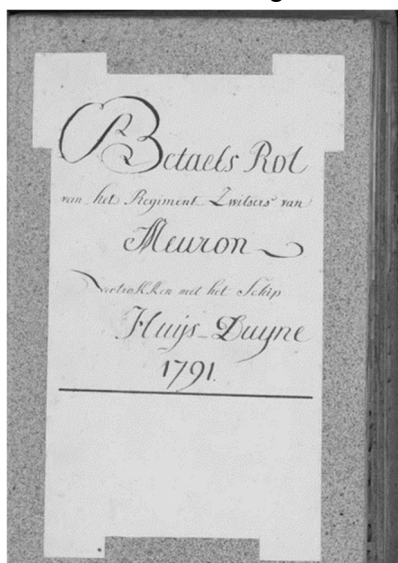 Betaels Rol
van het Regiment Zwitsers van
Meuron
vertrokken met het Schip
Huijs-Duyne
1791.